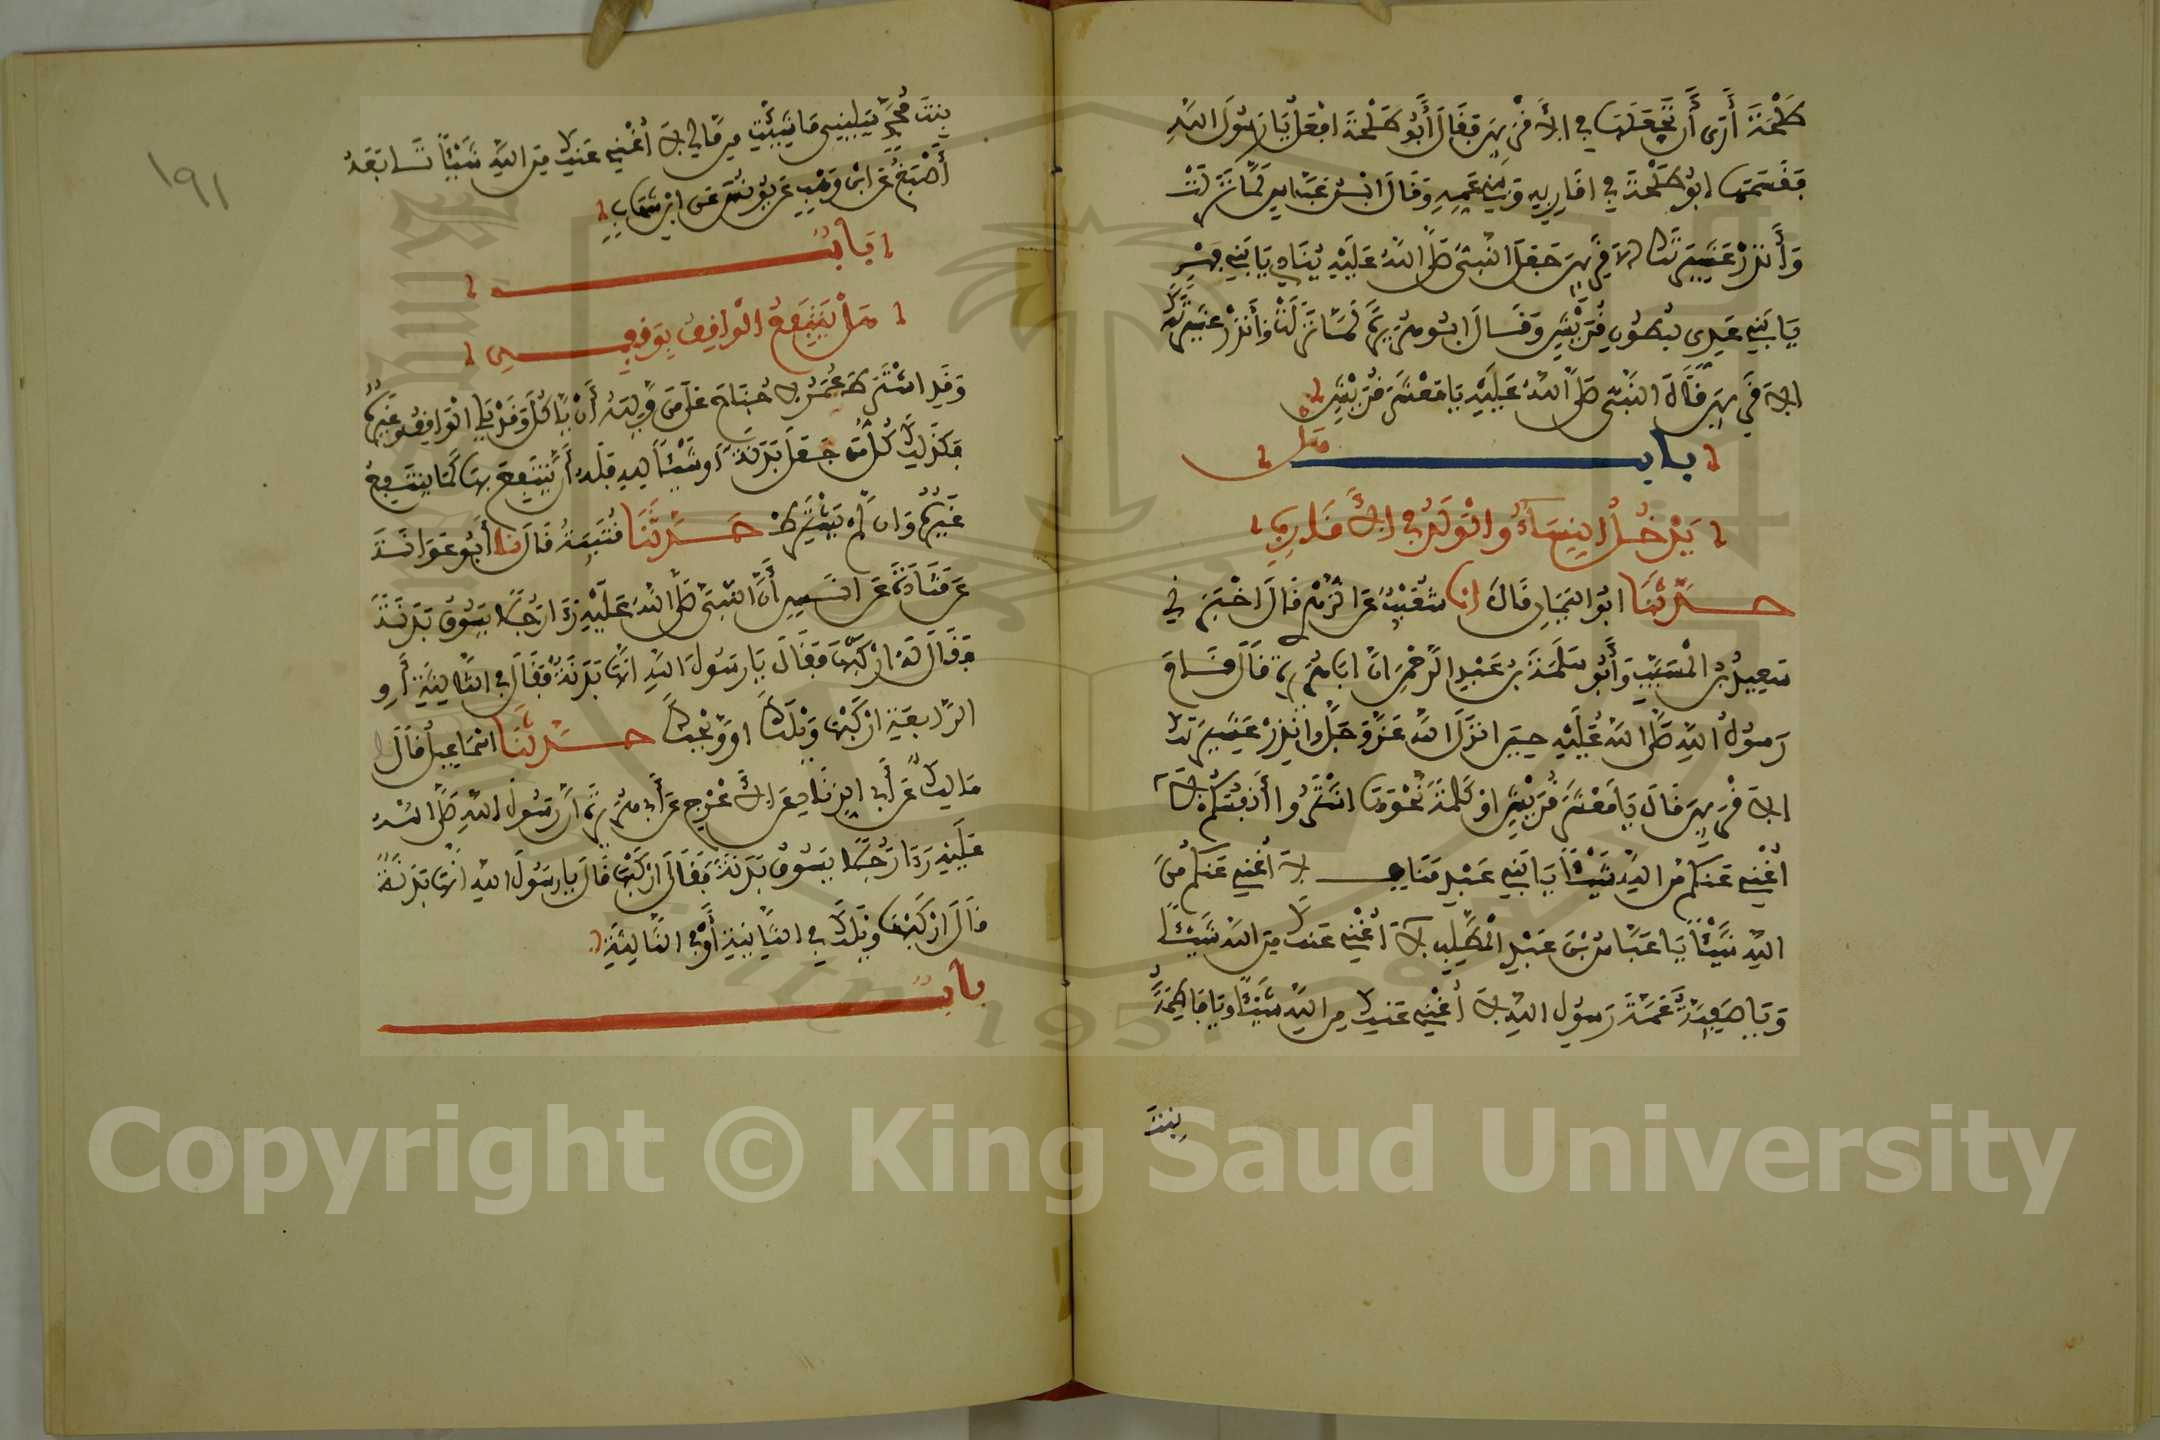 طَلْحَةَ أَرَى أَن تَجْعَلَهَا فِي الأَقْرَبِينَ فَقَالَ أَبُو طَلْحَةَ افْعَلُ يَا رَسُولَ اللهِ
فَقَسَمَهَا أَبُو طَلْحَةَ فِي أَقَارِبِهِ وَبَنِي عَمِّهِ وَقَالَ ابْنُ عَبَّاسٍ لَمَّا نَزَلَتْ
وَأَنذِرْ عَشِيرَتَكَ الأَقْرَبِينَ جَعَلَ النَّبِيُّ صَلَّى اللهُ عَلَيْهِ يُنَادِي يَا بَنِي فِهْرٍ
يَا بَنِي عَدِيٍّ لِبُطُونِ قُرَيْشٍ وَقَالَ أَبُو هُرَيْرَةَ لَمَّا نَزَلَتْ وَأَنذِرْ عَشِيرَتَكَ
الأَقْرَبِينَ قَالَ النَّبِيُّ صَلَّى اللهُ عَلَيْهِ يَا مَعْشَرَ قُرَيْشٍ
بَابٌ هَلْ
يَدْخُلُ النِّسَاءُ وَالْوَلَدُ فِي الأَقَارِبِ
حَدَّثَنَا أَبُو الْيَمَانِ قَالَ أنا شُعَيْبٌ عَنِ الزُّهْرِيِّ قَالَ أَخْبَرَنِي
سَعِيدُ بْنُ الْمُسَيَّبِ وَأَبُو سَلَمَةَ بْنُ عَبْدِ الرَّحْمَنِ أَنَّ أَبَا هُرَيْرَةَ قَالَ قَامَ
رَسُولُ اللهِ صَلَّى اللهُ عَلَيْهِ حِينَ أَنزَلَ اللهُ عَزَّ وَجَلَّ وَأَنذِرْ عَشِيرَتَكَ
الأَقْرَبِينَ قَالَ يَا مَعْشَرَ قُرَيْشٍ أَوْ كَلِمَةً نَحْوَهَا اشْتَرُوا أَنفُسَكُمْ لاَ
أُغْنِي عَنكُم مِّنَ اللهِ شَيْئًا يَا بَنِي عَبْدِ مَنَافٍ لاَ أُغْنِي عَنكُم مِّنَ
اللهِ شَيْئًا يَا عَبَّاسُ بْنَ عَبْدِ الْمُطَّلِبِ لاَ أُغْنِي عَنكَ مِنَ اللهِ شَيْئًا
وَيَا صَفِيَّةُ عَمَّةَ رَسُولِ اللهِ لاَ أُغْنِي عَنكِ مِنَ اللهِ شَيْئًا وَيَا فَاطِمَةُ
بِنتَ
١٩١
بِنتَ مُحَمَّدٍ سَلِينِي مَا شِئْتِ مِن مَّالِي لاَ أُغْنِي عَنكِ مِنَ اللهِ شَيْئًا تَابَعَهُ
أَصْبَغُ عَنِ ابْنِ وَهْبٍ عَن يُونُسَ عَنِ ابْنِ شِهَابٍ
بَابٌ
هَلْ يَنتَفِعُ الْوَاقِفُ بِوَقْفِهِ
وَقَدِ اشْتَرَطَ عُمَرُ لاَ جُنَاحَ عَلَى مَن وَلِيَهُ أَن يَّأْكُلَ وَقَدْ يَلِي الْوَاقِفُ وَغَيْرُهُ
وَكَذَلِكَ كُلُّ مَن جَعَلَ بَدَنَةً أَوْ شَيْئًا لِلهِ فَلَهُ أَن يَّنتَفِعَ بِهَا كَمَا يَنتَفِعُ
غَيْرُهُ وَإِن لَّمْ يَشْتَرِطْ حَدَّثَنَا قُتَيْبَةُ قَالَ نا أَبُو عَوَانَةَ
عَن قَتَادَةَ عَنْ أَنَسٍ أَنَّ النَّبِيَّ صَلَّى اللهُ عَلَيْهِ رَءَا رَجُلاً يَسُوقُ بَدَنَةً
فَقَالَ لَهُ ارْكَبْهَا فَقَالَ يَا رَسُولَ اللهِ إِنَّهَا بَدَنَةٌ فَقَالَ فِي الثَّالِثَةِ أَوِ
الرَّابِعَةِ ارْكَبْهَا وَيْلَكَ أَوْ وَيْحَكَ حَدَّثَنَا إِسْمَاعِيلُ قَالَ
مَالِكٌ عَنْ أَبِي الزِّنَادِ عَنِ الأَعْرَجِ عَنْ أَبِي هُرَيْرَةَ أَنَّ رَسُولَ اللهِ صَلَّى اللهُ
عَلَيْهِ رَءَا رَجُلاً يَسُوقُ بَدَنَةً فَقَالَ ارْكَبْهَا قَالَ يَا رَسُولَ اللهِ إِنَّهَا بَدَنَةٌ
قَالَ ارْكَبْهَا وَيْلَكَ فِي الثَّانِيَةِ أَوْ فِي الثَّالِثَةِ
بَابٌ
Copyright © King Saud University